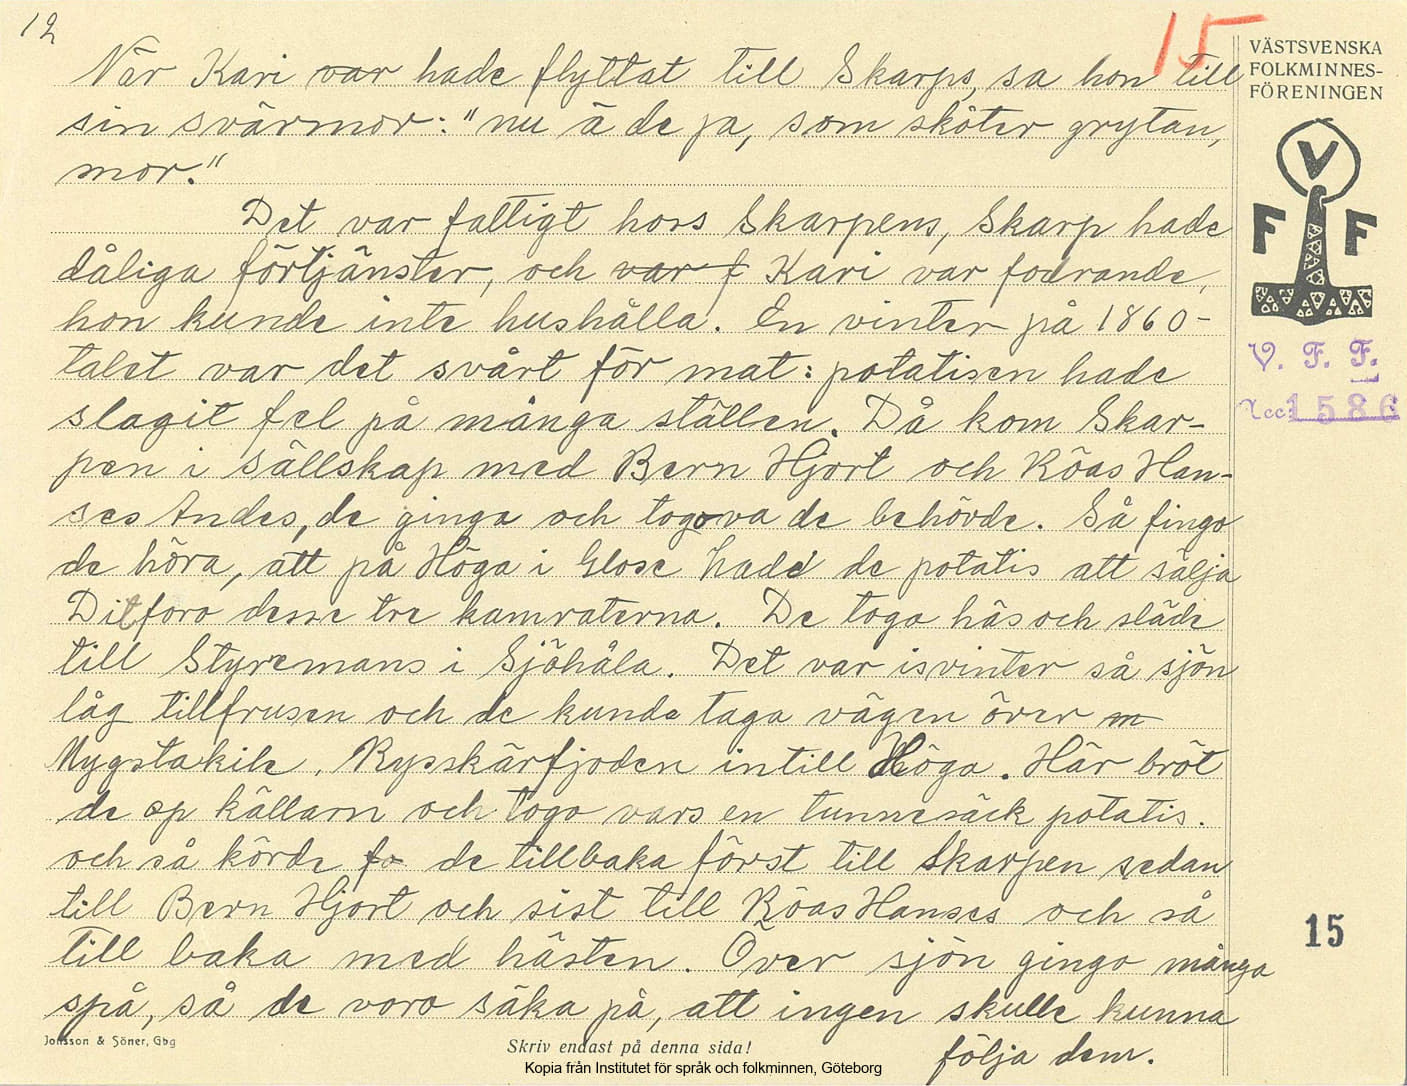 12
15
VÄSTSVENSKA
FOLKMINNES-
FÖRENINGEN
När Kari var hade flyttat till Skarps, sa hon till
sin svärmor: "nu ä de ja, som sköter grytan,
mor."
Det var fattigt hoss Skarpens, Skarp hade
dåliga förtjänster, och var f Kari var fodrande,
hon kunde inte hushålla. En vinter på 1860-
talet var det svårt för mat: potatisen hade
slagit fel på många ställen. Då kom Skar-
pen i sällskap med Bern Hjort och Röas Han-
ses Andes, de ginga och togo va de behövde. Så fingo
de höra, att på Höga i Glose hade de potatis att sälja
Ditforo desse tre kamraterna. De togo häs och släde
till Styremans i Sjöhåla. Det var isvinter så sjön
låg tillfrusen och de kunda taga vägen över m
Mygstakile, Rysskärfjoden intill Höga. Här bröt
de op källarn och togo vars en tunnesäck potatis.
och så körde fo de tillbaka först till Skarpen sedan
till Bern Hjort och sist till Röas Hanses och så
till baka med hästen. Över sjön gingo många
spå, så de voro säka på, att ingen skulle kunna
följa dem.
V
F F
V. F. F.
1586
15
Jonsson & Söner, Gbg
Skriv endast på denna sida!
Kopia från Institutet för språk och folkminnen, Göteborg